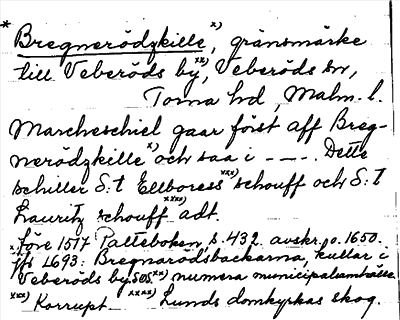 * Bregnerödzkille x), gränsmärke
till Veberöds by, xx) Veberöds sn,
Torna hd, Malm. l.
Marcheschiel gaar först aff Breg-
nerödzkille x) och saa i - - -. Dette
schiller S:t Ellboress xxx) schouff och S:t
Lauritz schouff xxxx) adt.
x Före 1517 Palteboken, s. 432. avskr. o. 1650.
jfr L693: Bregnarödsbackarna, kullar i
Veberöds by. SOS. xx) numera municipalsamhälle.
xxx) Korrupt. xxxx) Lunds domkyrkas skog.